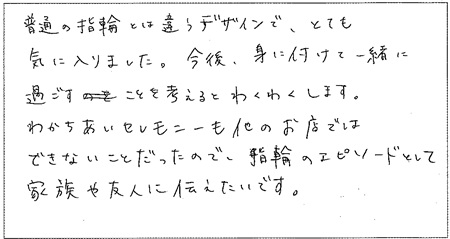 普通の指輪とは違うデザインで、とても
気に入りました。今後、身に付けて一緒に
過ごすことを考えるとわくわくします。
わかちあいセレモニーも他のお店では
できないことだったので、指輪のエピソードとして
家族や友人に伝えたいです。